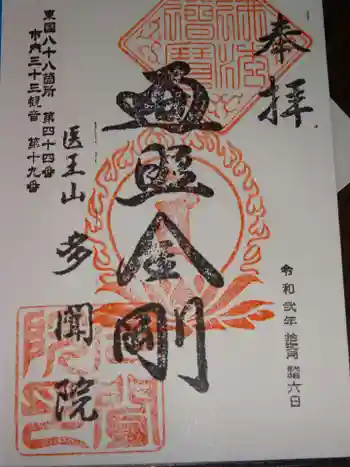 奉拝
令和弐年
六日
遍照金剛
医王山 多聞院
東国八十八箇所 第四十四番
市内三十三観音 第十九番